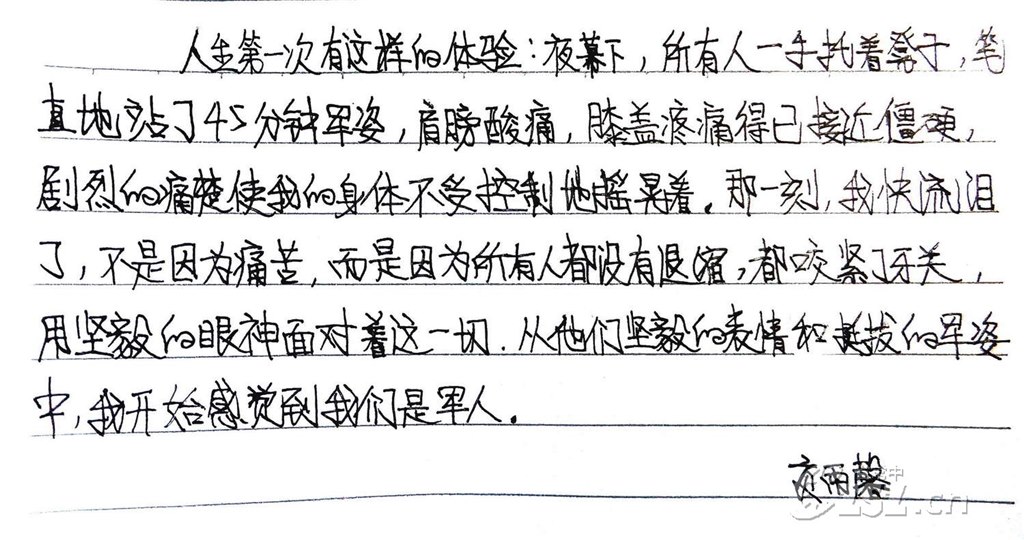 人生第一次有这样的体验：夜幕下，所有人一手托着凳子，笔
直地站了45分钟军姿，肩膀酸痛，膝盖疼痛得已接近僵硬，
剧烈的痛楚使我的身体不受控制地摇晃着。那一刻，我快流泪
了，不是因为痛苦，而是因为所有人都没有退缩，都咬紧了牙关，
用坚毅的眼神面对着这一切。从他们坚毅的表情和挺拔的军姿
中，我开始感觉到我们是军人。
雨馨